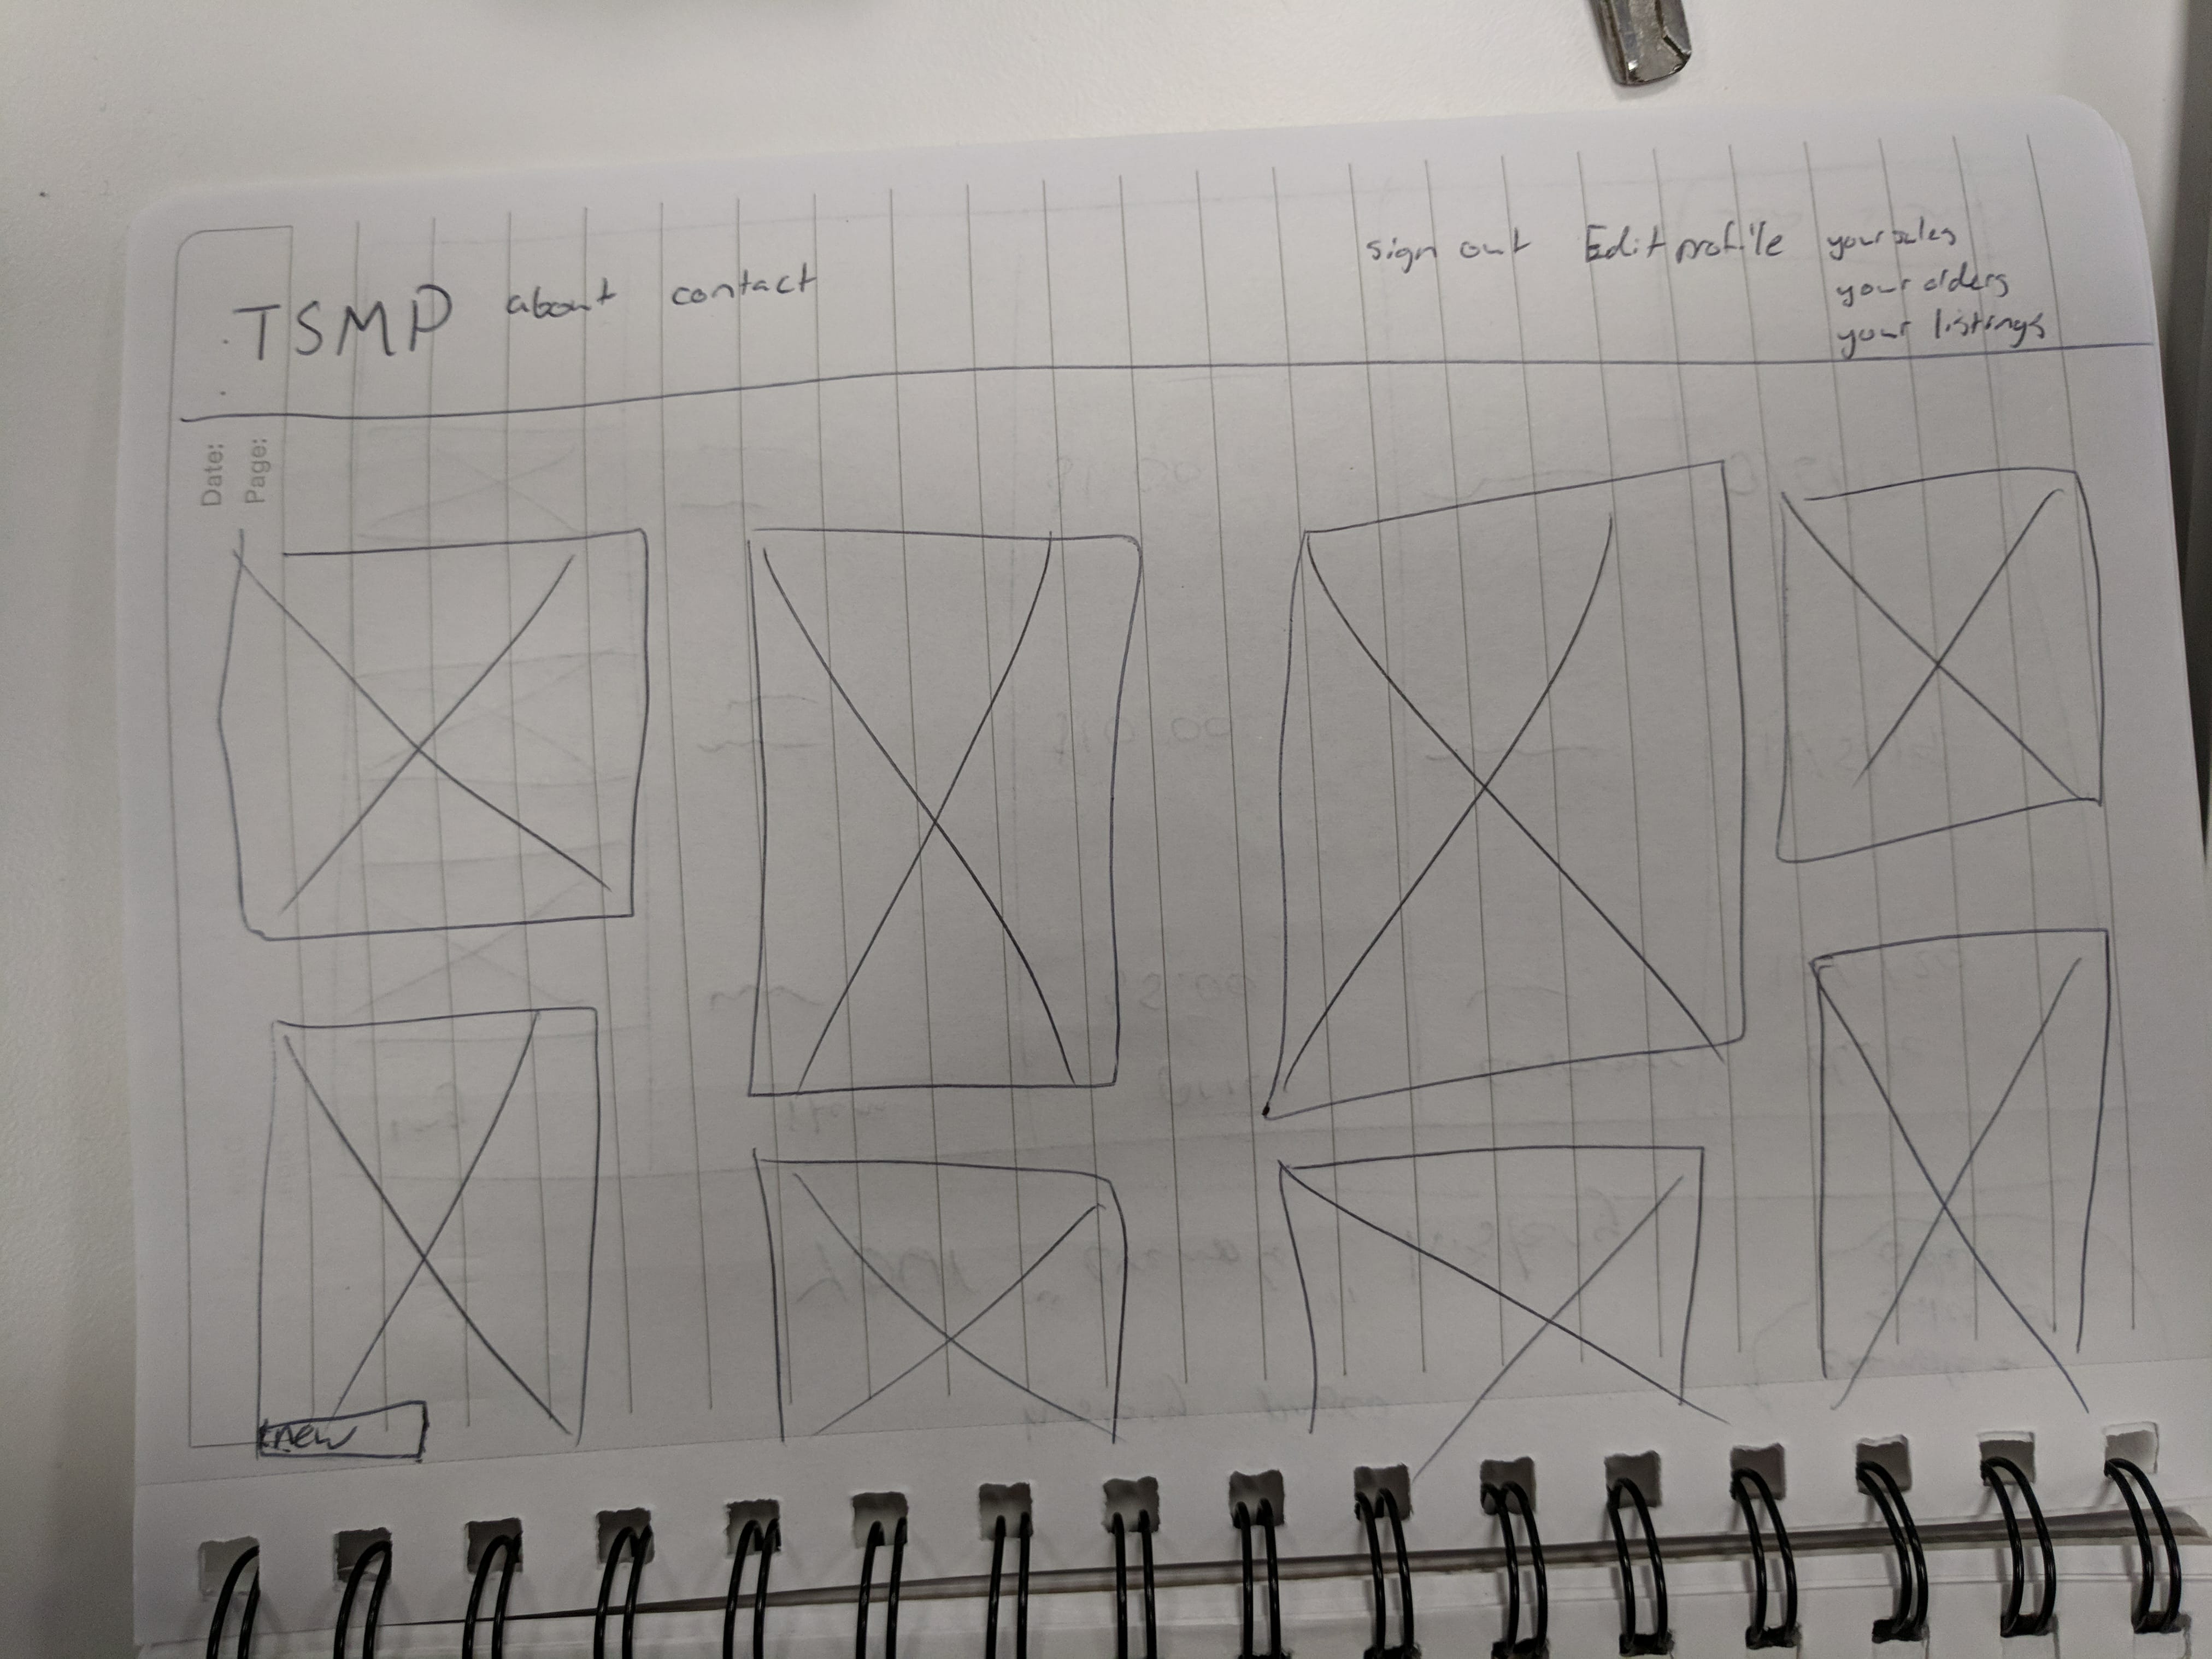 TSMP about contact
sign out Edit profile your sales
your orders
your listings
Date:
Page:
new